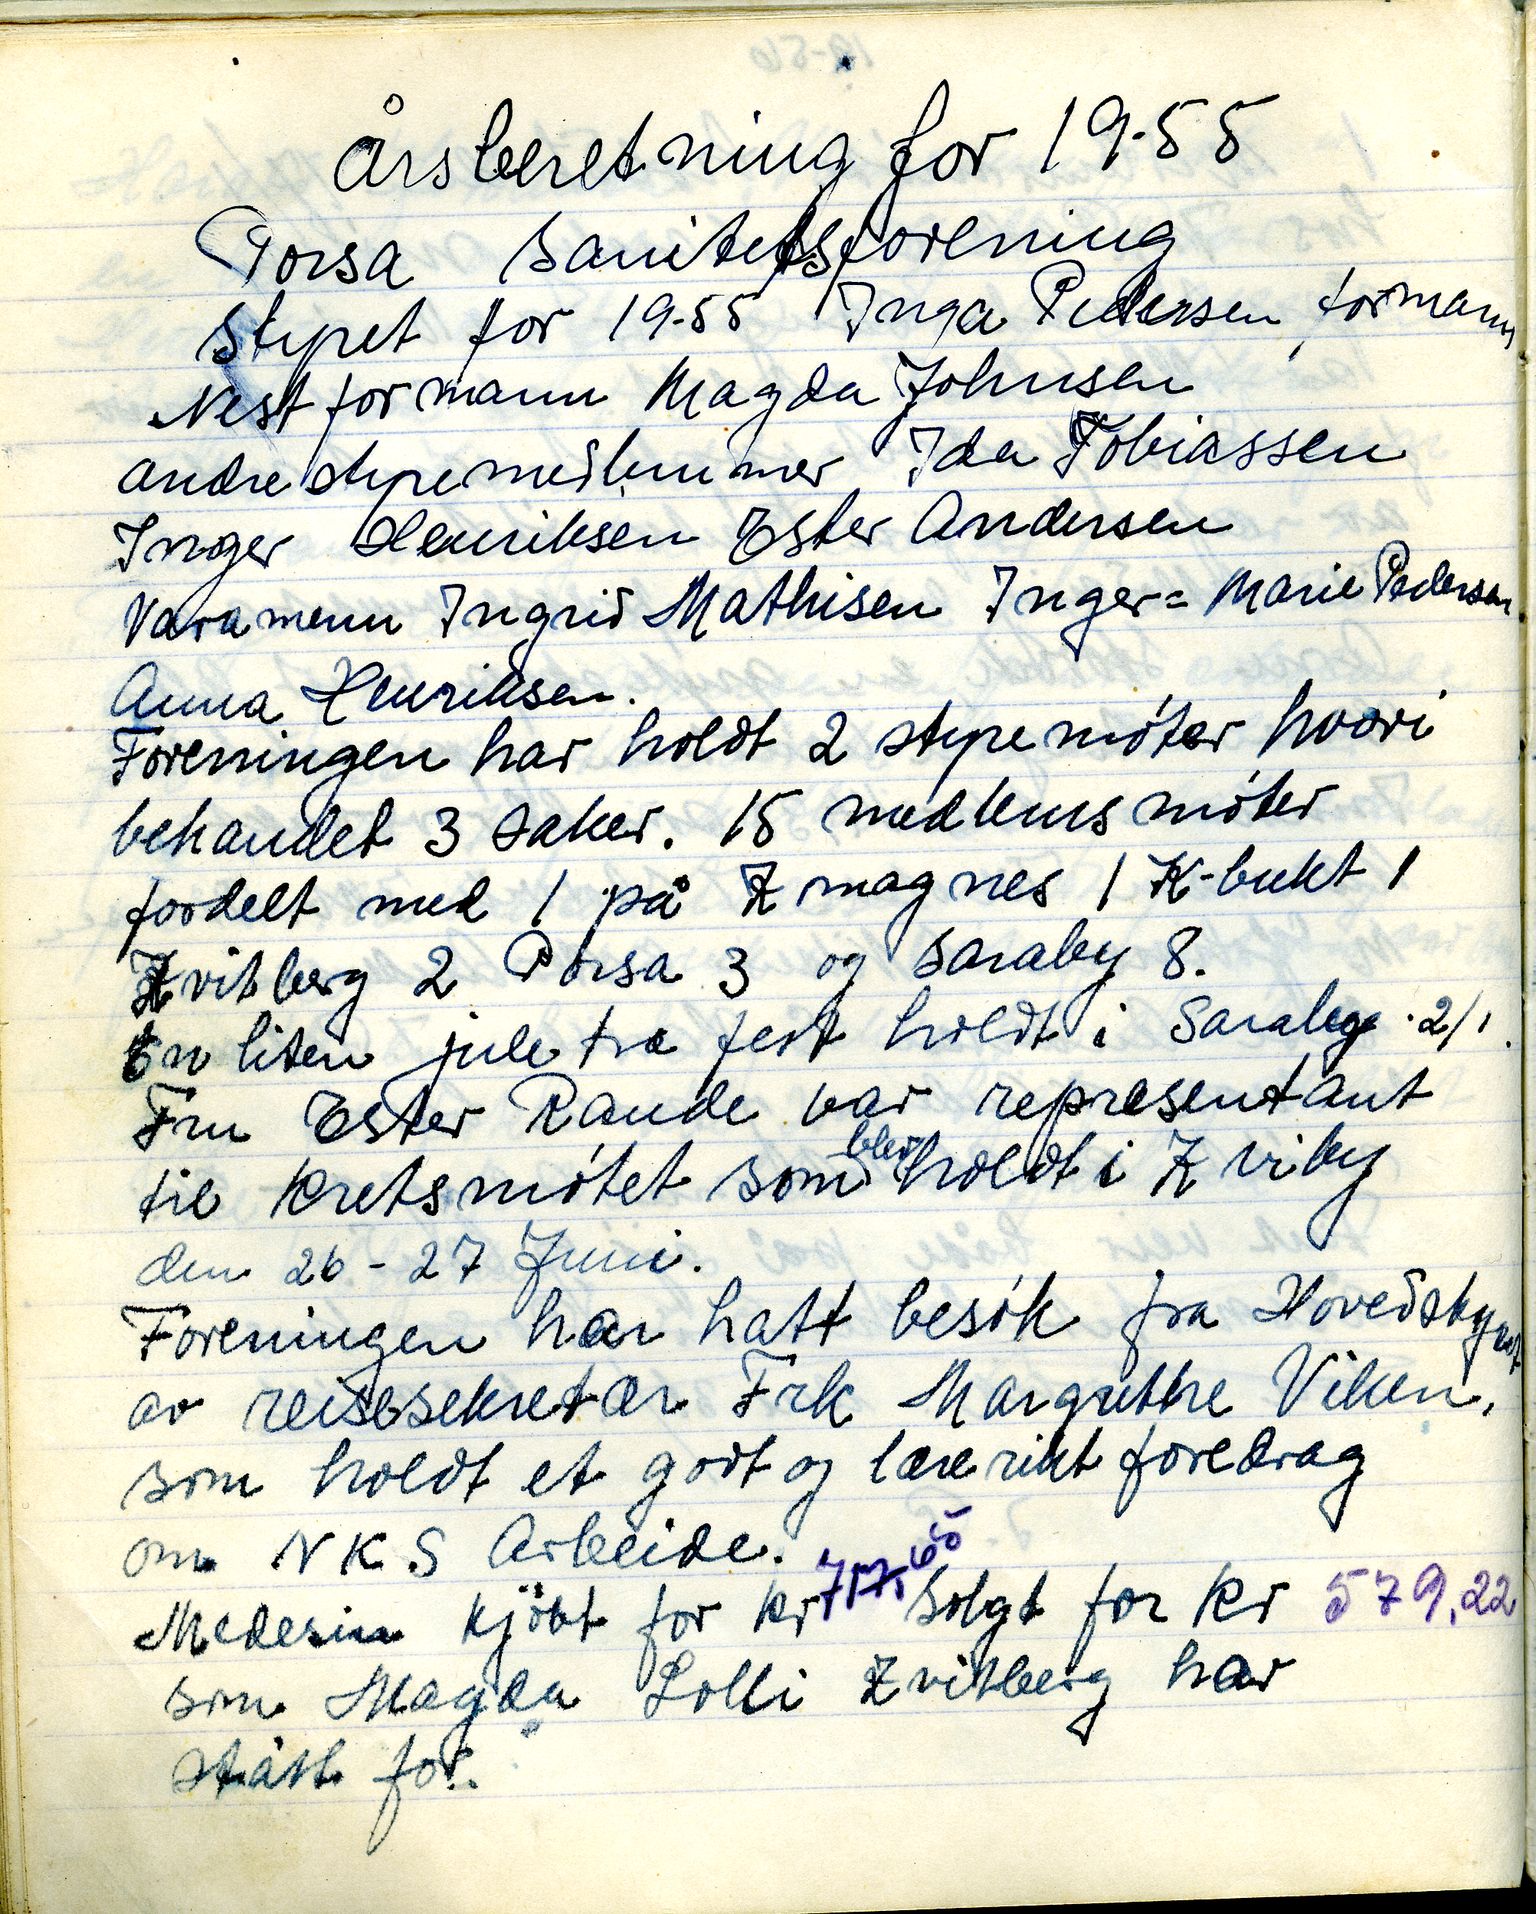 Årsberetning for 19-55
Porsa Sanitetsforening
Styret for 19-55 Inga Pedersen, formann
Nestformann Magda Johnsen
andre styremedlemmer Ida Tobiassen
Inger Henriksen Ester Andersen
Varamenn Ingrid Mathisen Inger=Marie Pedersen
Anna Henriksen.
Foreningen har holdt 2 styremöter hvori
behandlet 3 saker. 15 medlemsmöter
fordelt med 1 på Kmagnes 1 K-bukt 1
Kvitberg 2 Porsa 3 og Saraby 8.
En liten juletrefest holdt i Saraby 2/1.
Fru Ester Rande var representant
til kretsmötet som blev holdt i Kviby
den 26-27 Juni.
Foreningen har hatt besök fra Hovedstyret
av reisesekretær Frk Margrethe Viken,
som holdt et godt og lærerikt foredrag
om NKS Arbeide.
Medesin kjöbt for kr 717,65 Solgt for kr 579,22
som Magda Lolli Kvitberg har
stått for.